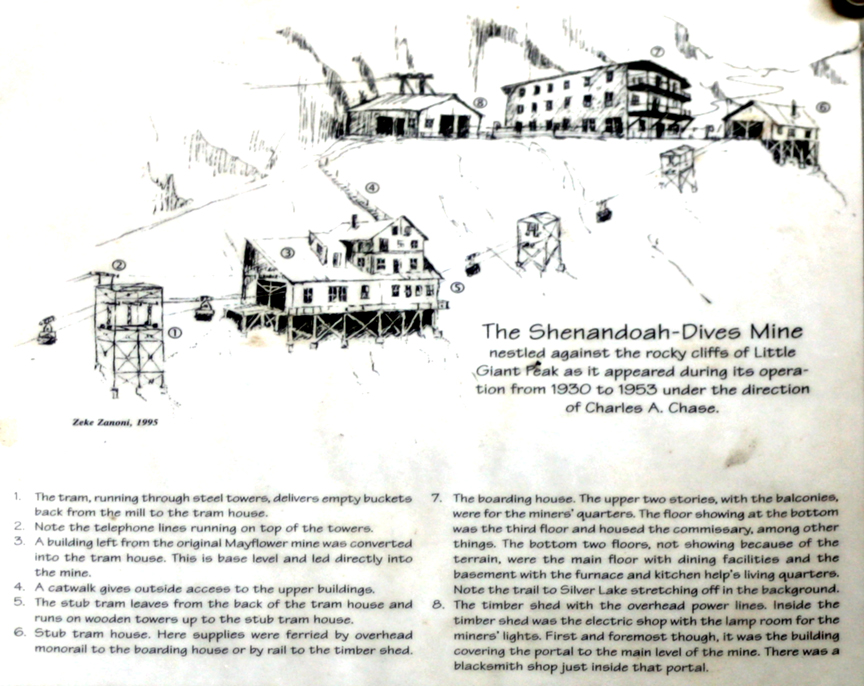 ⑦
⑧
⑥
④
③
②
⑤
①
The Shenandoah-Dives Mine
nestled against the rocky cliffs of Little
Giant Peak as it appeared during its opera-
tion from 1930 to 1953 under the direction
of Charles A. Chase.
Zeke Zanoni, 1995
1. The tram, running through steel towers, delivers empty buckets
back from the mill to the tram house.
2. Note the telephone lines running on top of the towers.
3. A building left from the original Mayflower mine was converted
into the tram house. This is base level and led directly into
the mine.
4. A catwalk gives outside access to the upper buildings.
5. The stub tram leaves from the back of the tram house and
runs on wooden towers up to the stub tram house.
6. Stub tram house. Here supplies were ferried by overhead
monorail to the boarding house or by rail to the timber shed.
7. The boarding house. The upper two stories, with the balconies,
were for the miners' quarters. The floor showing at the bottom
was the third floor and housed the commissary, among other
things. The bottom two floors, not showing because of the
terrain, were the main floor with dining facilities and the
basement with the furnace and kitchen help's living quarters.
Note the trail to Silver Lake stretching off in the background.
8. The timber shed with the overhead power lines. Inside the
timber shed was the electric shop with the lamp room for the
miners' lights. First and foremost though, it was the building
covering the portal to the main level of the mine. There was a
blacksmith shop just inside that portal.